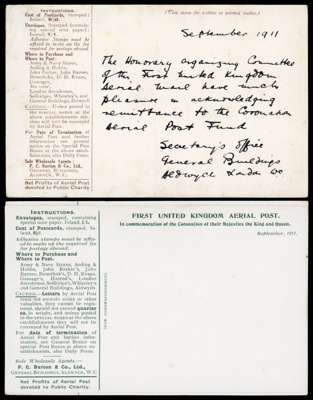 INSTRUCTIONS.
Cost of Postcards, stamped:
Envelopes, stamped (containing
special note paper):
Adhesive Stamps must be
affixed to make up the fee
required for postage abroad.
Where to Purchase and
Where to Post:—
Army & Navy Stores,
Arding & Hobbs,
John Barker, John Barnes,
Bourne's, D. H. Evans,
Gamage's,
Harrods,
London Aerodrome,
Selfridge's, Whiteley's, and
General Buildings, Aldwych
For Date of Termination of
Aerial Post and further
information see General
Notices on special Post
Boxes at above
establishments, also Daily Press.
Sole Wholesale Agents
F. C. Barton & Co. Ltd.,
GENERAL BUILDINGS,
ALDWYCH, W.C.
Net Profits of Aerial Post
devoted to Public Charity.
(This space for written or printed matter.)
September 1911
The Honorary organizing Committee
of the First United Kingdom
Aerial Mail have much
pleasure in acknowledging
remittance to the Coronation
Aerial Post Fund
Secretary's office
General Buildings
Aldwych London WC
INSTRUCTIONS.
Envelopes, stamped, containing
special note paper, Inland 1/1.
Cost of Postcards, stamped, Inland,
Adhesive stamps must be affixed
to make up the required fee
for postage abroad.
Where to Purchase
and Where to Post.
Army & Navy Stores, Arding &
Hobbs, John Barker's, John
Barnes, D. H. Evans,
Gamage's, Harrod's, London
Aerodrome, Selfridge's, Whiteley's
and General Buildings, Aldwych.
CAUTION.—Letters by Aerial Post
must not contain coins or other
valuables, they cannot be registered,
should not exceed quarter
oz. in weight, and unless posted
in the special boxes at the above
establishments they will not be
conveyed by Aerial Post.
For date of termination of
Aerial Post and further information,
see General Notice on
special Post Boxes at above establishments,
also Daily Press.
Sole Wholesale Agents—
F. C. Barton & Co., Ltd.,
GENERAL BUILDINGS, ALDWYCH, W.C.
Net Profits of Aerial Post
devoted to Public Charity.
FIRST UNITED KINGDOM AERIAL POST.
In commemoration of the Coronation of their Majesties the King and Queen.
September, 1911.